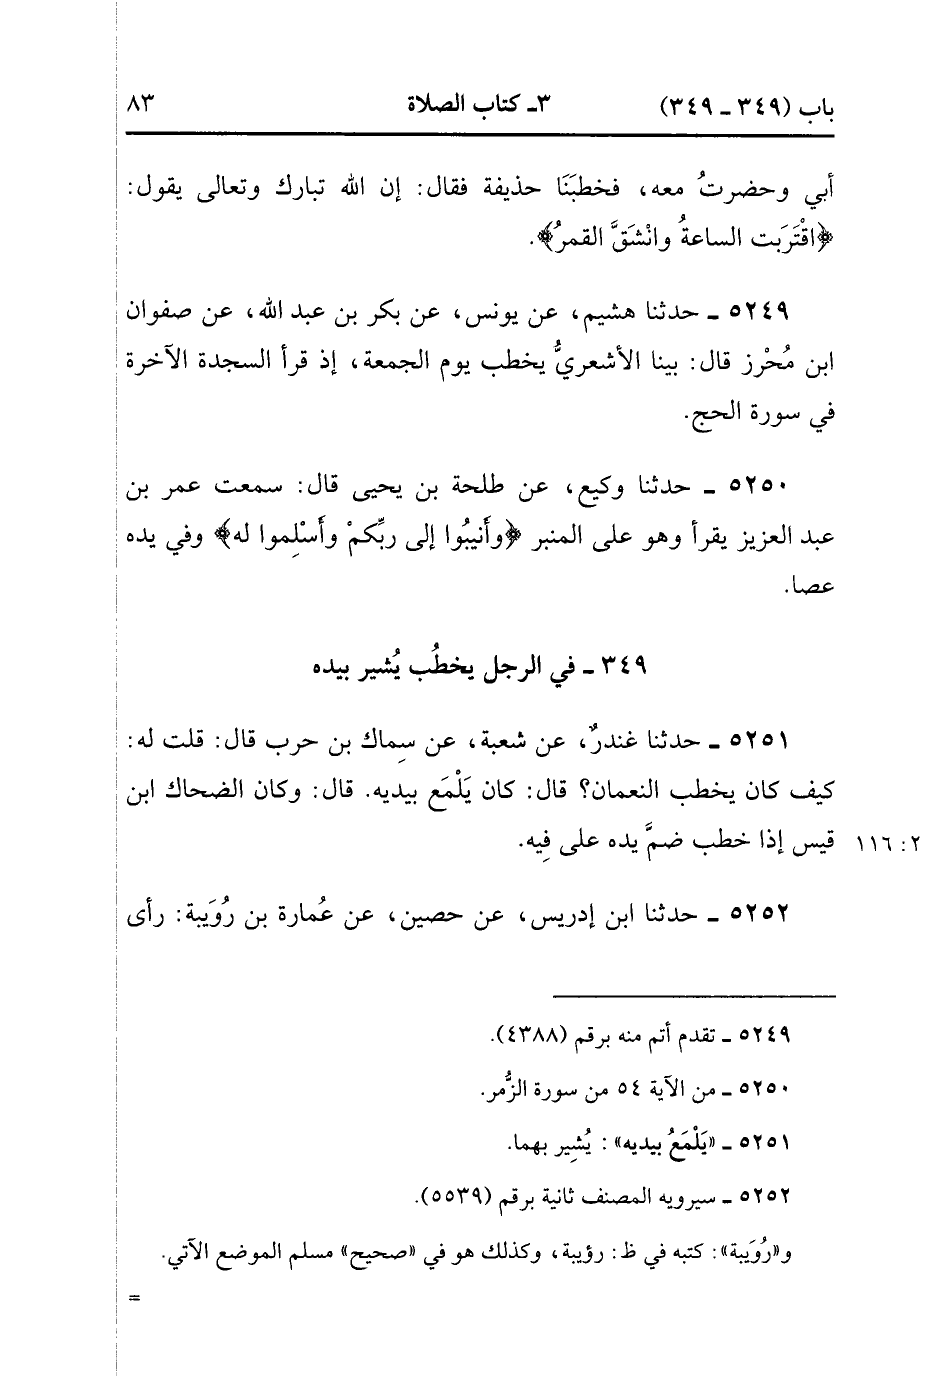 باب (٣٤٩ ـ ٣٤٩) ٣ـ كتاب الصلاة ٨٣
أبي وحضرتُ معه، فخطبَنَا حذيفة فقال: إن الله تبارك وتعالى يقول:
﴿اقْتَرَبت الساعةُ وانْشَقَّ القمرُ﴾.
٥٢٤٩ ـ حدثنا هشيم، عن يونس، عن بكر بن عبد الله، عن صفوان
ابن مُحْرز قال: بينا الأشعريُّ يخطب يوم الجمعة، إذ قرأ السجدة الآخرة
في سورة الحج.
٥٢٥٠ ـ حدثنا وكيع، عن طلحة بن يحيى قال: سمعت عمر بن
عبد العزيز يقرأ وهو على المنبر ﴿وأَنيبُوا إلى ربِّكمْ وأَسْلِموا له﴾ وفي يده
عصا.
٣٤٩ ـ في الرجل يخطُب يُشير بيده
٥٢٥١ ـ حدثنا غندرٌ، عن شعبة، عن سِماك بن حرب قال: قلت له:
كيف كان يخطب النعمان؟ قال: كان يَلْمَع بيديه. قال: وكان الضحاك ابن
قيس إذا خطب ضمَّ يده على فِيه. ٢: ١١٦
٥٢٥٢ ـ حدثنا ابن إدريس، عن حصين، عن عُمارة بن رُوَيبة: رأى
٥٢٤٩ ـ تقدم أتم منه برقم (٤٣٨٨).
٥٢٥٠ ـ من الآية ٥٤ من سورة الزُّمر.
٥٢٥١ ـ «يَلْمَعُ بيديه»: يُشِير بهما.
٥٢٥٢ ـ سيرويه المصنف ثانية برقم (٥٥٣٩).
و«رُوَيبة»: كتبه في ظ: رؤيبة، وكذلك هو في «صحيح» مسلم الموضع الآتي.
=